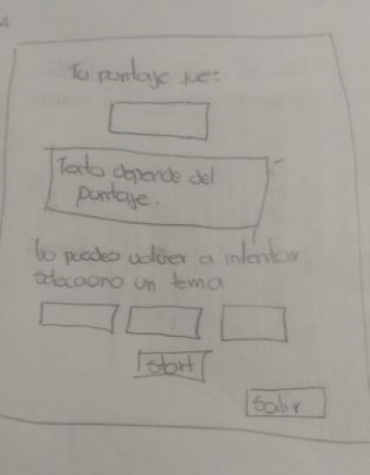 Tu puntaje fue:
Texto depende del
puntaje.
Lo puedes volver a intentar
selecciona un tema
Start
Salir